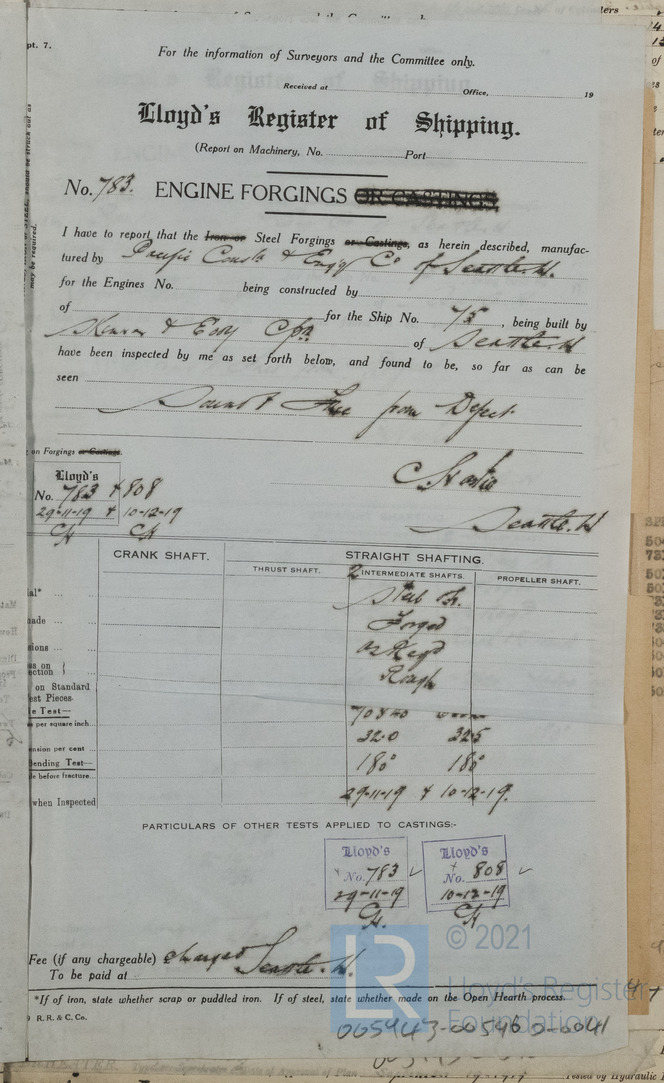 pt. 7.
For the information of Surveyors and the Committee only.
Received at Office, 19
Lloyd's Register of Shipping.
(Report on Machinery, No. Port
No. 783. ENGINE FORGINGS OR CASTINGS.
I have to report that the Iron or Steel Forgings or Castings, as herein described, manufac-
tured by Pacific Const & Eng'g Co of Seattle. W.
for the Engines No. being constructed by
of for the Ship No. 75, being built by
Skinner & Eddy Cpn of Seattle. W
have been inspected by me as set forth below, and found to be, so far as can be
seen
Sound & Free from Defect
on Forgings or Castings.
Lloyd's
No. 783 + 808
29-11-19 + 10-12-19
CH CH
Seattle. W
CRANK SHAFT. STRAIGHT SHAFTING.
THRUST SHAFT. 2 INTERMEDIATE SHAFTS. PROPELLER SHAFT.
ial*
Forged
made
as Req'd
sions
Rough
ss on
ection
on Standard
est Pieces.
le Test—
s per square inch 70840
ension per cent 32.0 32.5
Bending Test— 180° 180°
le before fracture
when Inspected 29-11-19 & 10-12-19.
PARTICULARS OF OTHER TESTS APPLIED TO CASTINGS:-
Lloyd's Lloyd's
No. 783 No. 808
29-11-19 10-12-19
CH. CH
Fee (if any chargeable) charged
To be paid at Seattle. W.
*If of iron, state whether scrap or puddled iron. If of steel, state whether made on the Open Hearth process.
R. R. & C. Co.
LR © 2021
Lloyd's Register
Foundation
005943-005960-0041